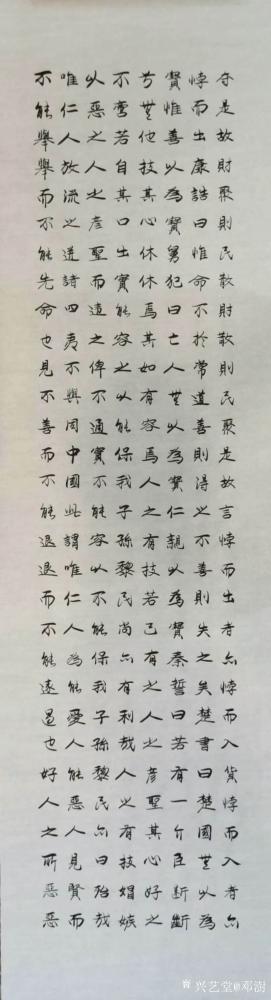 夺是故財聚則民散財散則民聚是故言悖而出者亦悖而入貨悖而入者亦
悖而出康誥曰惟命不於常道善則得之不善則失之矣楚書曰楚國無以為
寶惟善以為寶舅犯曰亡人無以為寶仁親以為寶秦誓曰若有一个臣斷斷
兮無他技其心休休焉其如有容焉人之有技若己有之人之彥聖其心好之
不啻若自其口出實能容之以能保我子孫黎民尚亦有利哉人之有技媢嫉
以惡之人之彥聖而違之俾不通實不能容以不能保我子孫黎民亦曰殆哉
唯仁人放流之迸諸四夷不與同中國此謂唯仁人為能愛人能惡人見賢而
不能舉舉而不能先命也見不善而不能退退而不能遠過也好人之所惡惡
兴艺堂@邓澍